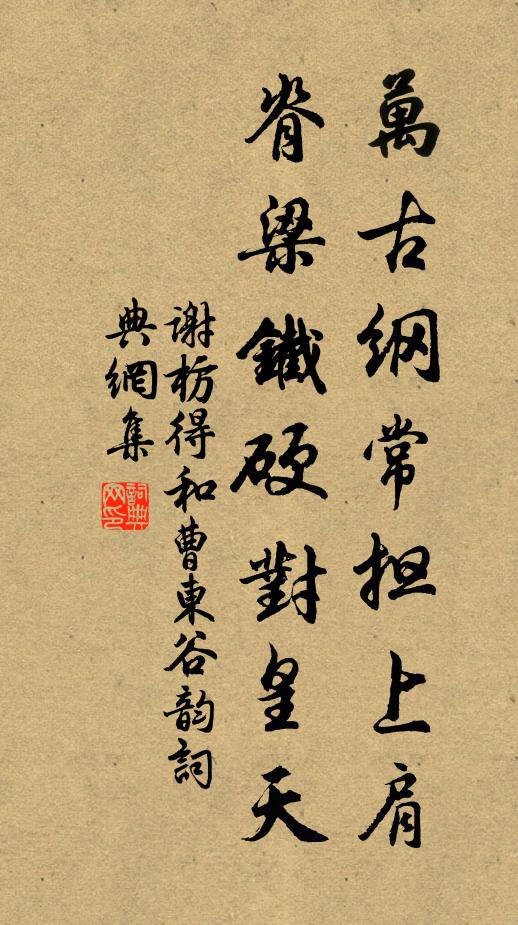 萬古綱常担上肩
脊梁鐵硬對皇天
謝枋得和曹東谷韵詞
典網集
詞典网印